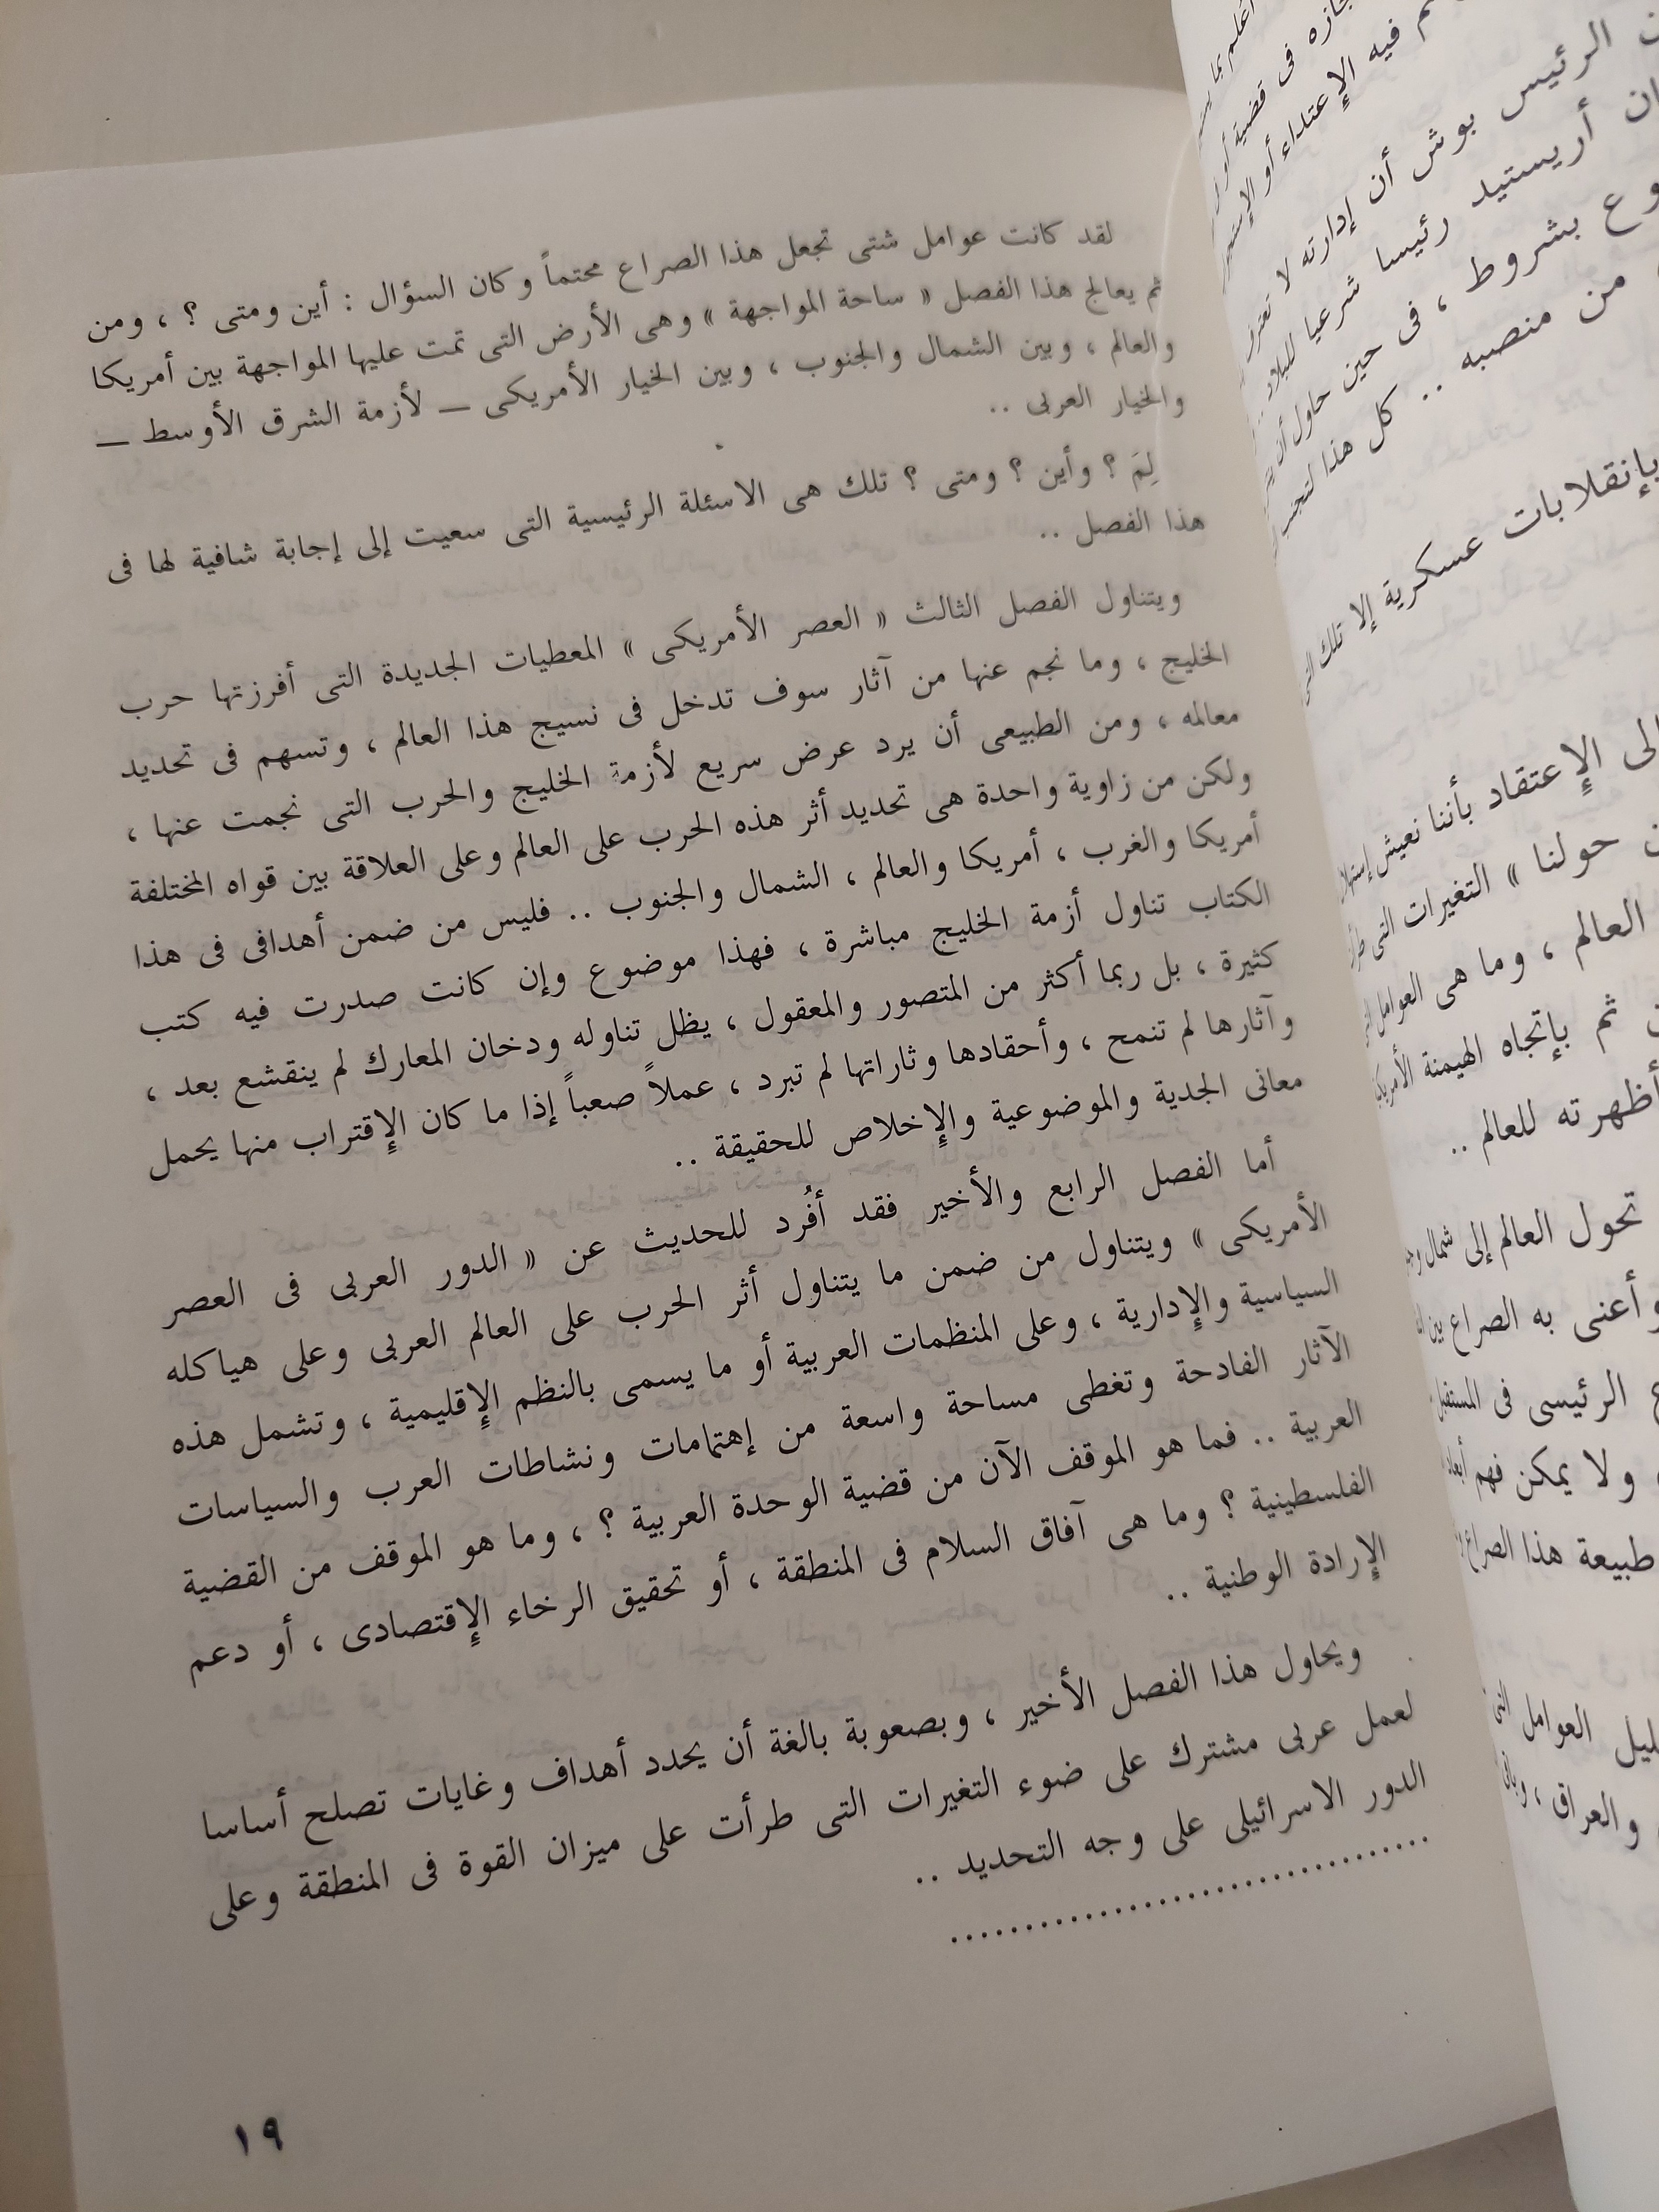 لقد كانت عوامل شتى تجعل هذا الصراع محتماً وكان السؤال : أين ومتى ؟ ، ومن
ثم يعالج هذا الفصل « ساحة المواجهة » وهى الأرض التى تمت عليها المواجهة بين أمريكا
والعالم ، وبين الشمال والجنوب ، وبين الخيار الأمريكى ــ لأزمة الشرق الأوسط ــ
والخيار العربى ..
لِمَ ؟ وأين ؟ ومتى ؟ تلك هى الاسئلة الرئيسية التى سعيت إلى إجابة شافية لها فى
هذا الفصل ..
ويتناول الفصل الثالث « العصر الأمريكى » المعطيات الجديدة التى أفرزتها حرب
الخليج ، وما نجم عنها من آثار سوف تدخل فى نسيج هذا العالم ، وتسهم فى تحديد
معالمه ، ومن الطبيعى أن يرد عرض سريع لأزمة الخليج والحرب التى نجمت عنها ،
ولكن من زاوية واحدة هى تحديد أثر هذه الحرب على العالم وعلى العلاقة بين قواه المختلفة
أمريكا والغرب ، أمريكا والعالم ، الشمال والجنوب .. فليس من ضمن أهدافى فى هذا
الكتاب تناول أزمة الخليج مباشرة ، فهذا موضوع وإن كانت صدرت فيه كتب
كثيرة ، بل ربما أكثر من المتصور والمعقول ، يظل تناوله ودخان المعارك لم ينقشع بعد ،
وآثارها لم تنمح ، وأحقادها وثاراتها لم تبرد ، عملاً صعباً إذا ما كان الإقتراب منها يحمل
معانى الجدية والموضوعية والإخلاص للحقيقة ..
أما الفصل الرابع والأخير فقد أفُرد للحديث عن « الدور العربى فى العصر
الأمريكى » ويتناول من ضمن ما يتناول أثر الحرب على العالم العربى وعلى هياكله
السياسية والإدارية ، وعلى المنظمات العربية أو ما يسمى بالنظم الإقليمية ، وتشمل هذه
الآثار الفادحة وتغطى مساحة واسعة من إهتمامات ونشاطات العرب والسياسات
العربية .. فما هو الموقف الآن من قضية الوحدة العربية ؟ ، وما هو الموقف من القضية
الفلسطينية ؟ وما هى آفاق السلام فى المنطقة ، أو تحقيق الرخاء الإقتصادى ، أو دعم
الإرادة الوطنية ..
ويحاول هذا الفصل الأخير ، وبصعوبة بالغة أن يحدد أهداف وغايات تصلح أساسا
لعمل عربى مشترك على ضوء التغيرات التى طرأت على ميزان القوة فى المنطقة وعلى
الدور الاسرائيلى على وجه التحديد ..
................................
١٩
فيه الإعتداء أو
الرئيس بوش أن إدارته لا تعترف
أريستيد رئيسا شرعيا للبلاد ..
بشروط ، فى حين حاول أن
من منصبه .. كل هذا
بإنقلابات عسكرية إلا تلك التى
الإعتقاد بأننا نعيش
حولنا » التغيرات التى
العالم ، وما هى العوامل
ثم بإتجاه الهيمنة الأمريكية
أظهرته للعالم ..
تحول العالم إلى شمال
وأعنى به الصراع بين
الرئيسى فى المستقبل
ولا يمكن فهم
طبيعة هذا الصراع
العوامل التى
والعراق ،